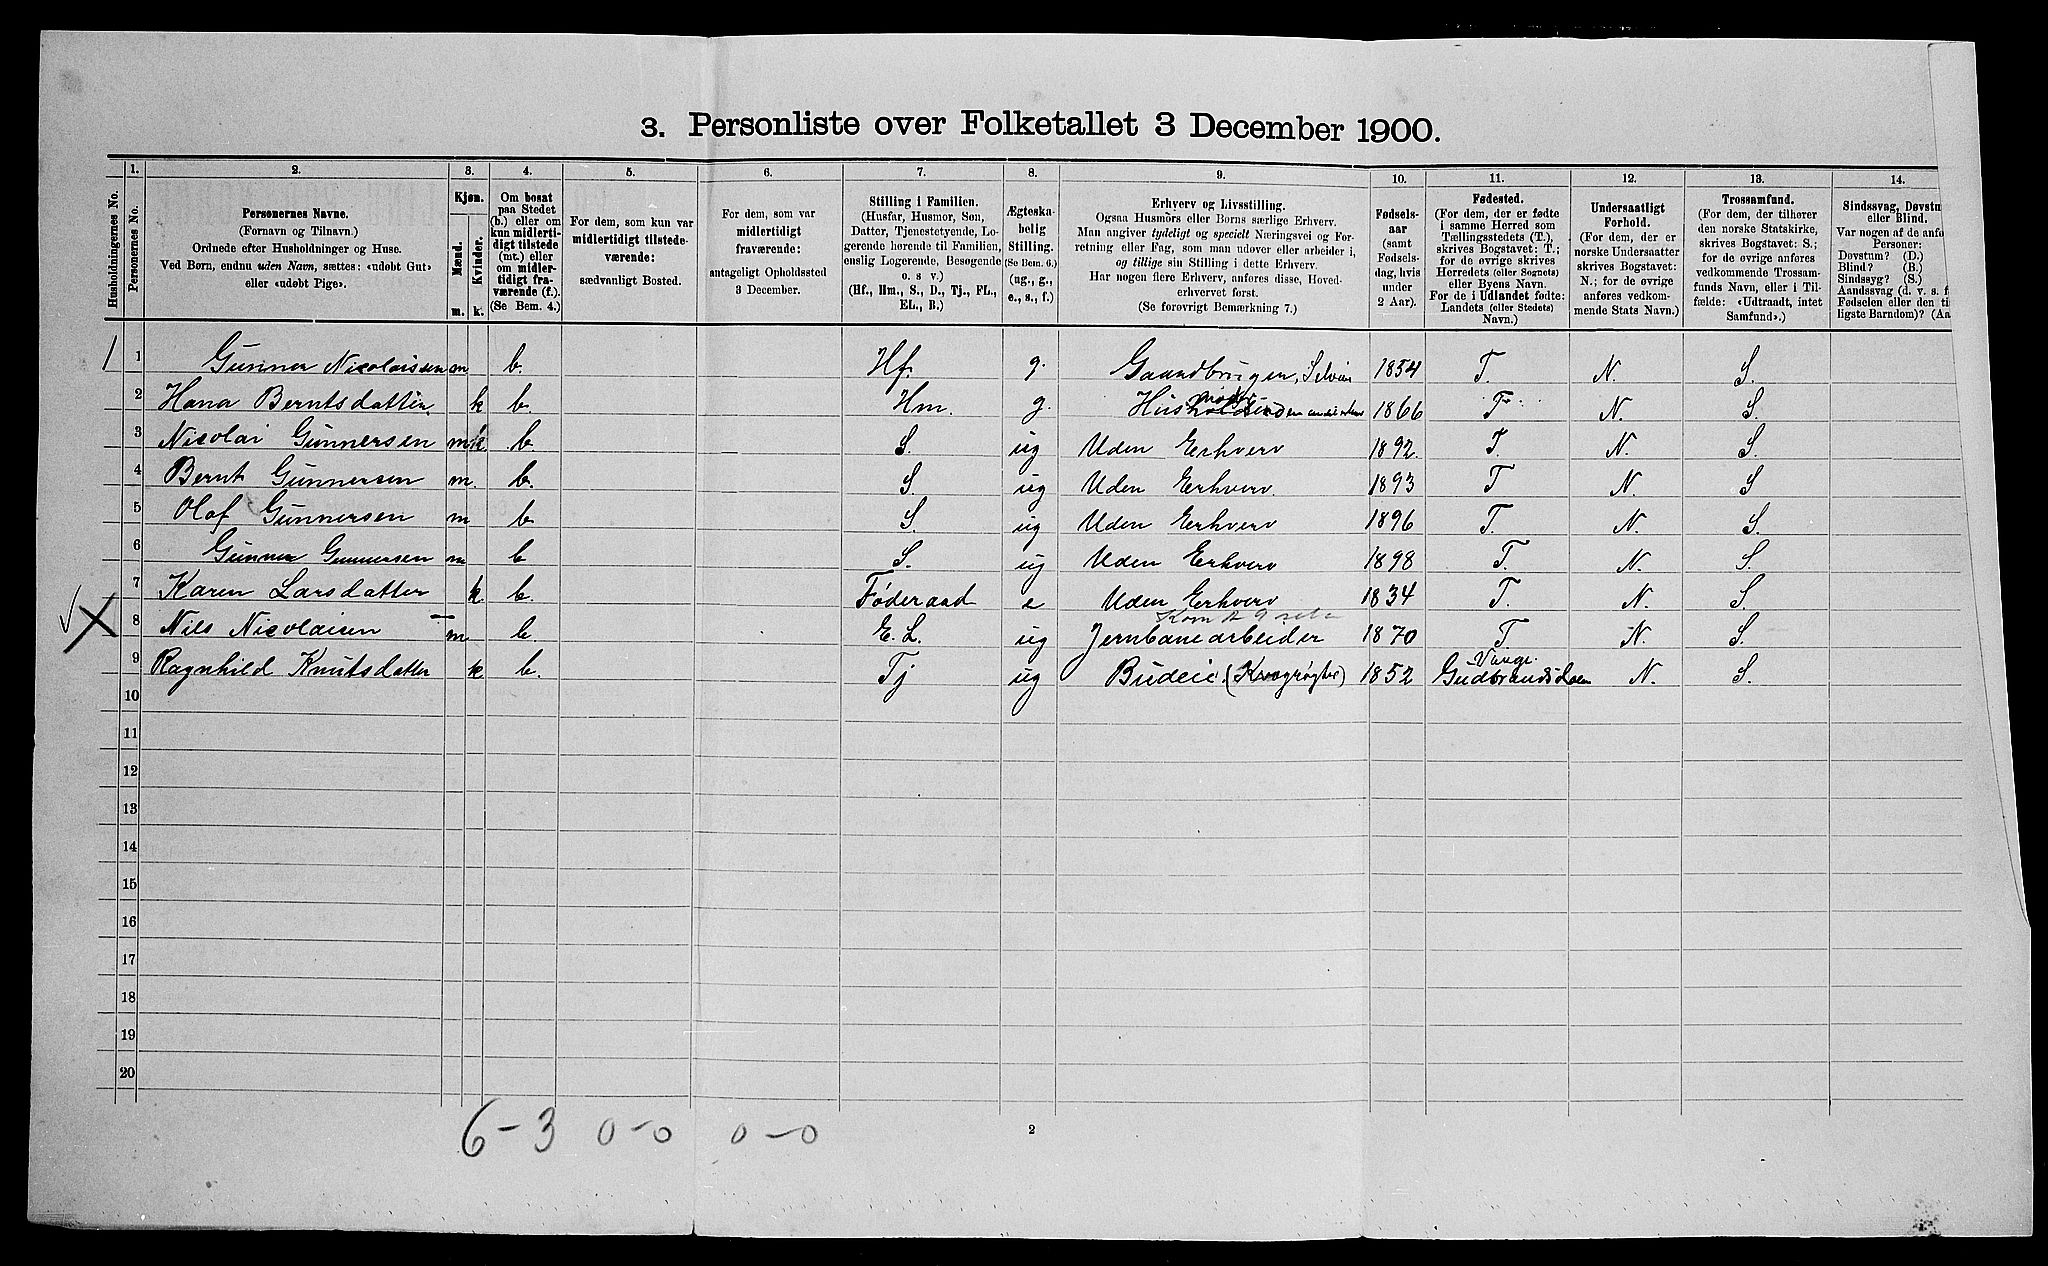 3. Personliste over Folketallet 3 December 1900.
1. 2. 3. 4. 5. 6. 7. 8. 9. 10. 11. 12. 13. 14.
Husholdningernes No.
Personernes No.
Personernes Navne.
(Fornavn og Tilnavn.)
Ordnede efter Husholdninger og Huse.
Ved Børn, endnu uden Navn, sættes: «udøbt Gut»
eller «udøbt Pige».
Kjøn.
Mænd.
Kvinder.
m. k.
Om bosat
paa Stedet
(b.) eller om
kun midler-
tidigt tilstede
(mt.) eller
om midler-
tidigt fra-
værende (f.).
(Se Bem. 4.)
For dem, som kun var
midlertidigt tilstede-
værende:
sædvanligt Bosted.
For dem, som var
midlertidigt
fraværende:
antageligt Opholdssted
3 December.
Stilling i Familien.
(Husfar, Husmor, Søn,
Datter, Tjenestetyende, Lo-
gerende hørende til Familien,
enslig Logerende, Besøgende
o. s v.)
(Hf., Hm., S., D., Tj., FL.,
EL., B.)
Ægteska-
belig
Stilling.
(Se Bem. 6.)
(ug., g.,
e., s., f.)
Erhverv og Livsstilling.
Ogsaa Husmors eller Børns særlige Erhverv.
Man angiver tydeligt og specielt Næringsvei og For-
retning eller Fag, som man udøver eller arbeider i,
og tillige sin Stilling i dette Erhverv.
Har nogen flere Erhverv, anføres disse, Hoved-
erhvervet først.
(Se forøvrigt Bemærkning 7.)
Fødsels-
aar
(samt
Fødsels-
dag, hvis
under
2 Aar).
Fødested.
(For dem, der er fødte
i samme Herred som
Tællingsstedets (T.),
skrives Bogstavet: T.;
for de øvrige skrives
Herredets (eller Sognets)
eller Byens Navn.
For de i Udlandet fødte:
Landets (eller Stedets)
Navn.)
Undersaatligt
Forhold.
(For dem, der er
norske Undersaatter
skrives Bogstavet:
N.; for de øvrige
anføres vedkom-
mende Stats Navn.)
Trossamfund.
(For dem, der tilhører
den norske Statskirke,
skrives Bogstavet: S.;
for de øvrige anføres
vedkommende Trossam-
funds Navn, eller i Til-
fælde: «Udtraadt, intet
Samfund».)
Sindssvag, Døvstu
eller Blind.
Var nogen af de anfø
Personer:
Døvstum? (D.)
Blind? (B.)
Sindssyg? (S.)
Aandssvag (d. v. s. f
Fødselen eller den ti
ligste Barndom)? (Aa
1 1 Gunner Nicolaisen m b. Hf. g. Gaardbruger, Selveier 1854 T. N. S.
2 Hana Berntsdatter k b. Hm. g. Hus 1866 T. N. S.
3 Nicolai Gunnersen m k b. S. ug Uden Erhverv 1892 T. N. S.
4 Bernt Gunnersen m. b. S. ug Uden Erhverv. 1893 T N. S
5 Olaf Gunnersen m b S. ug Uden Erhverv 1896 T. N. S.
6 Gunner Gunnersen m b S. ug Uden Erhverv 1898 T. N. S.
7 Karen Larsdatter k. b. Føderaad e Uden Erhverv 1834 T. N. S.
8 Nils Nicolaisen m b. E. L. ug Jernbanearbeider 1870 T N. S.
9 Ragnhild Knutsdatter k b. Tj ug Budeie. (Kreagrøgter) 1852 Gudbrandsdalen N. S.
10
11
12
13
14
15
16
17
18
19
20
6-3 0-0 0-0
2